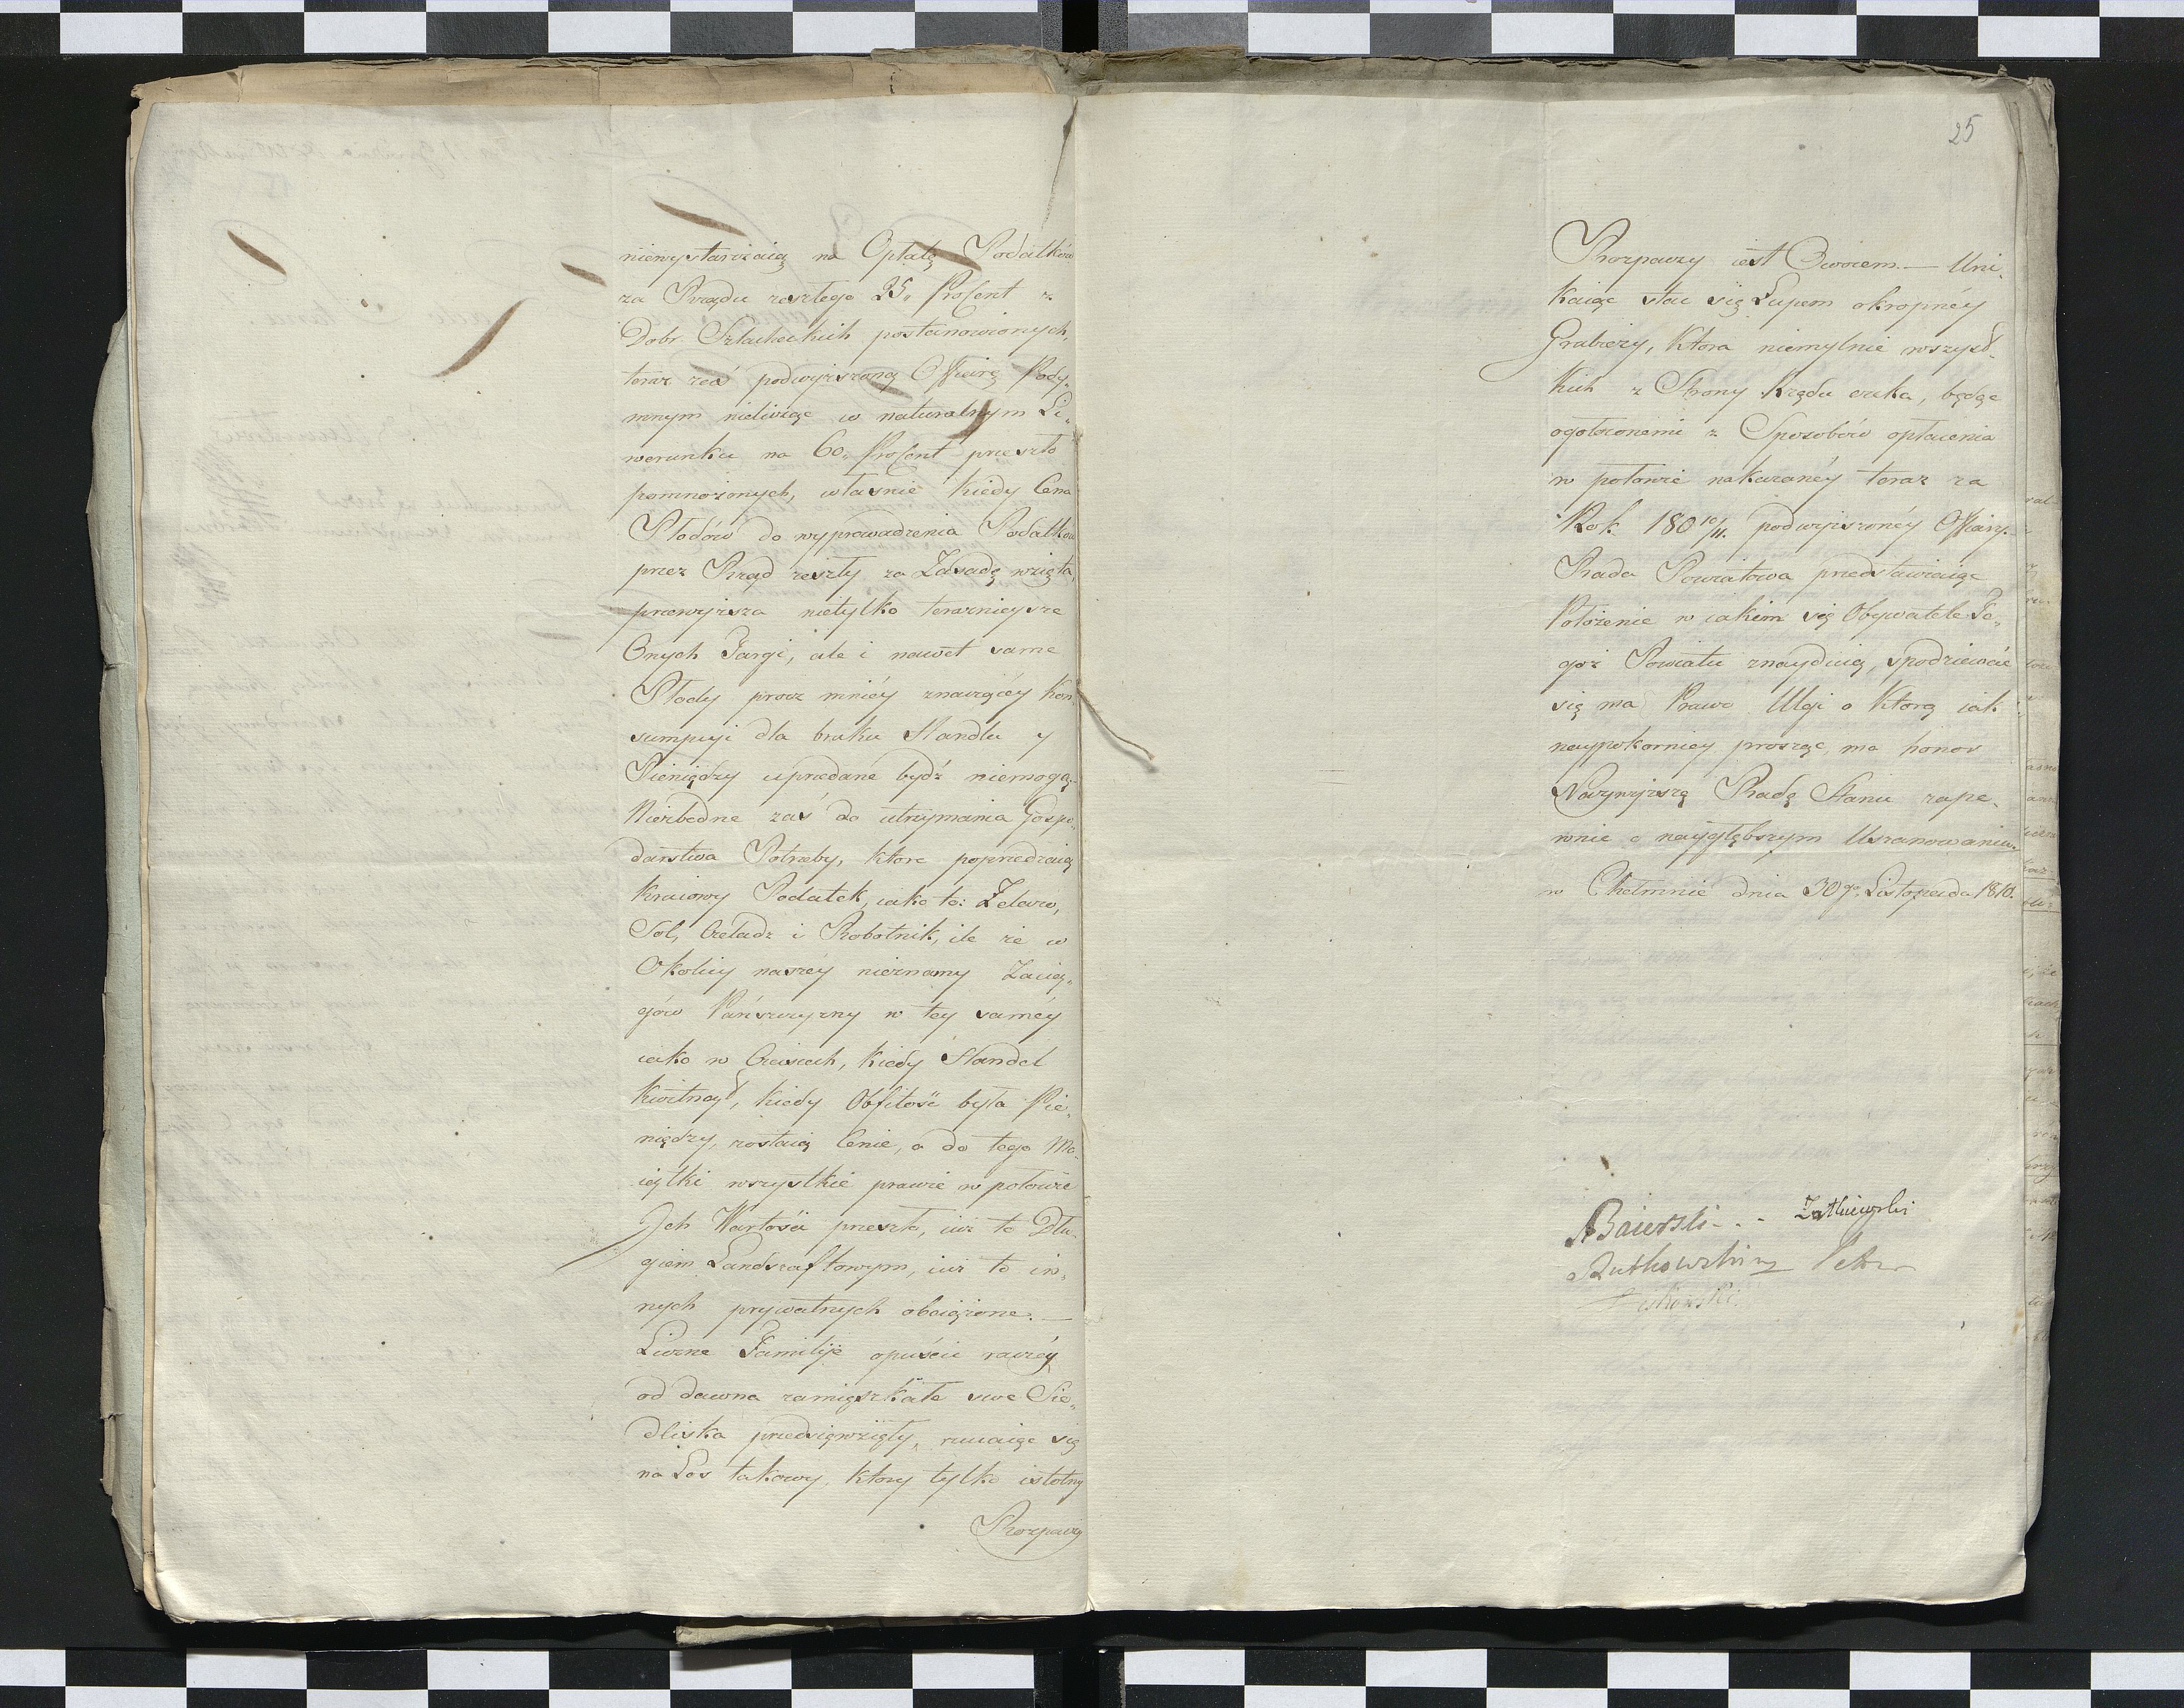 niewystarczaią na Opłatę Podatków
za Rządu zeszłego 25. ProCent z
Dobr Szlacheckich postanowionych,
teraz zaś podwyższoną Offiarą Pody„
mnym nielicząc w naturalnym Li„
werunku na 60. ProCent przeszło
pomnożonych, własnie kiedy Cena
Płodów do wyprowadzenia Podatków
przez Rząd zeszły za Zasadę wzięta,
przewyższa nietylko teraznieysze
Onych Targi, ale i nawet same
Płody procz mniéy znaczącéy Kon„
sumpcyi dla braku Handlu y
Pieniędzy uprzedane bydź niemogą.
Niezbedne zaś do utrzymania Gospo„
darstwa Potrzeby, ktore poprzedzaią
kraiowy Podatek, iako to: Zelazo,
Sol, Czeladz i Robotnik, ile że w
Okolicy naszéy nieznamy Zacią„
gów Pańszczyzny w tey saméy
iako w Czasiech, kiedy Handel
kwitnął, kiedy Obfitość była Pie„
niędzy, zostaią Cenie, a do tego Ma„
iątki wszystkie prawie w połowie
Jch Wartości przeszło, iuż to Dłu„
giem Landszaftowym, iuż to in„
nych prywatnych obciążone.—
Liczne Familije opuścić raczéy
od dawna zamięszkałe swe Sie„
dliska przedsięwzięły, rzucaiąc się
na Los takowy, ktory tylko istotny
Rozpaczy
25
Rozpaczy iest Owocem.— Uni„
kaiąc stać się Łupem okropnéy
Grabieży, ktora niemylnie wszyst„
kich z Strony Rządu czeka, będąc
ogołoconemi z Sposobów opłacenia
w połowie nakazanéy teraz za
Rok 18010/11. podwyższonéy Offiary.
Rada Powiatowa przedstawiaiąc
Położenie w iakim się Obywatele Te„
goż Powiatu znayduią, spodziewać
się ma Prawo Ulgi o ktorą iak
naypokorniey prosząc, ma honor
Naywyższą Radę Stanu zape„
wnić o naygłębszym Uszanowaniu.
w Chełmnie dnia 30go. Listopada 1810.
ABaierski
Rutkowski